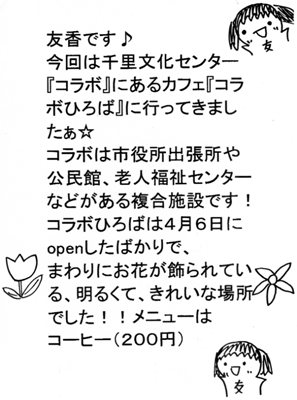 友香です♪
今回は千里文化センター
『コラボ』にあるカフェ『コラ
ボひろば』に行ってきまし
たぁ☆
コラボは市役所出張所や
公民館、老人福祉センター
などがある複合施設です！
コラボひろばは４月６日に
openしたばかりで、
まわりにお花が飾られてい
る、明るくて、きれいな場所
でした！！メニューは
コーヒー（２００円）
友
友